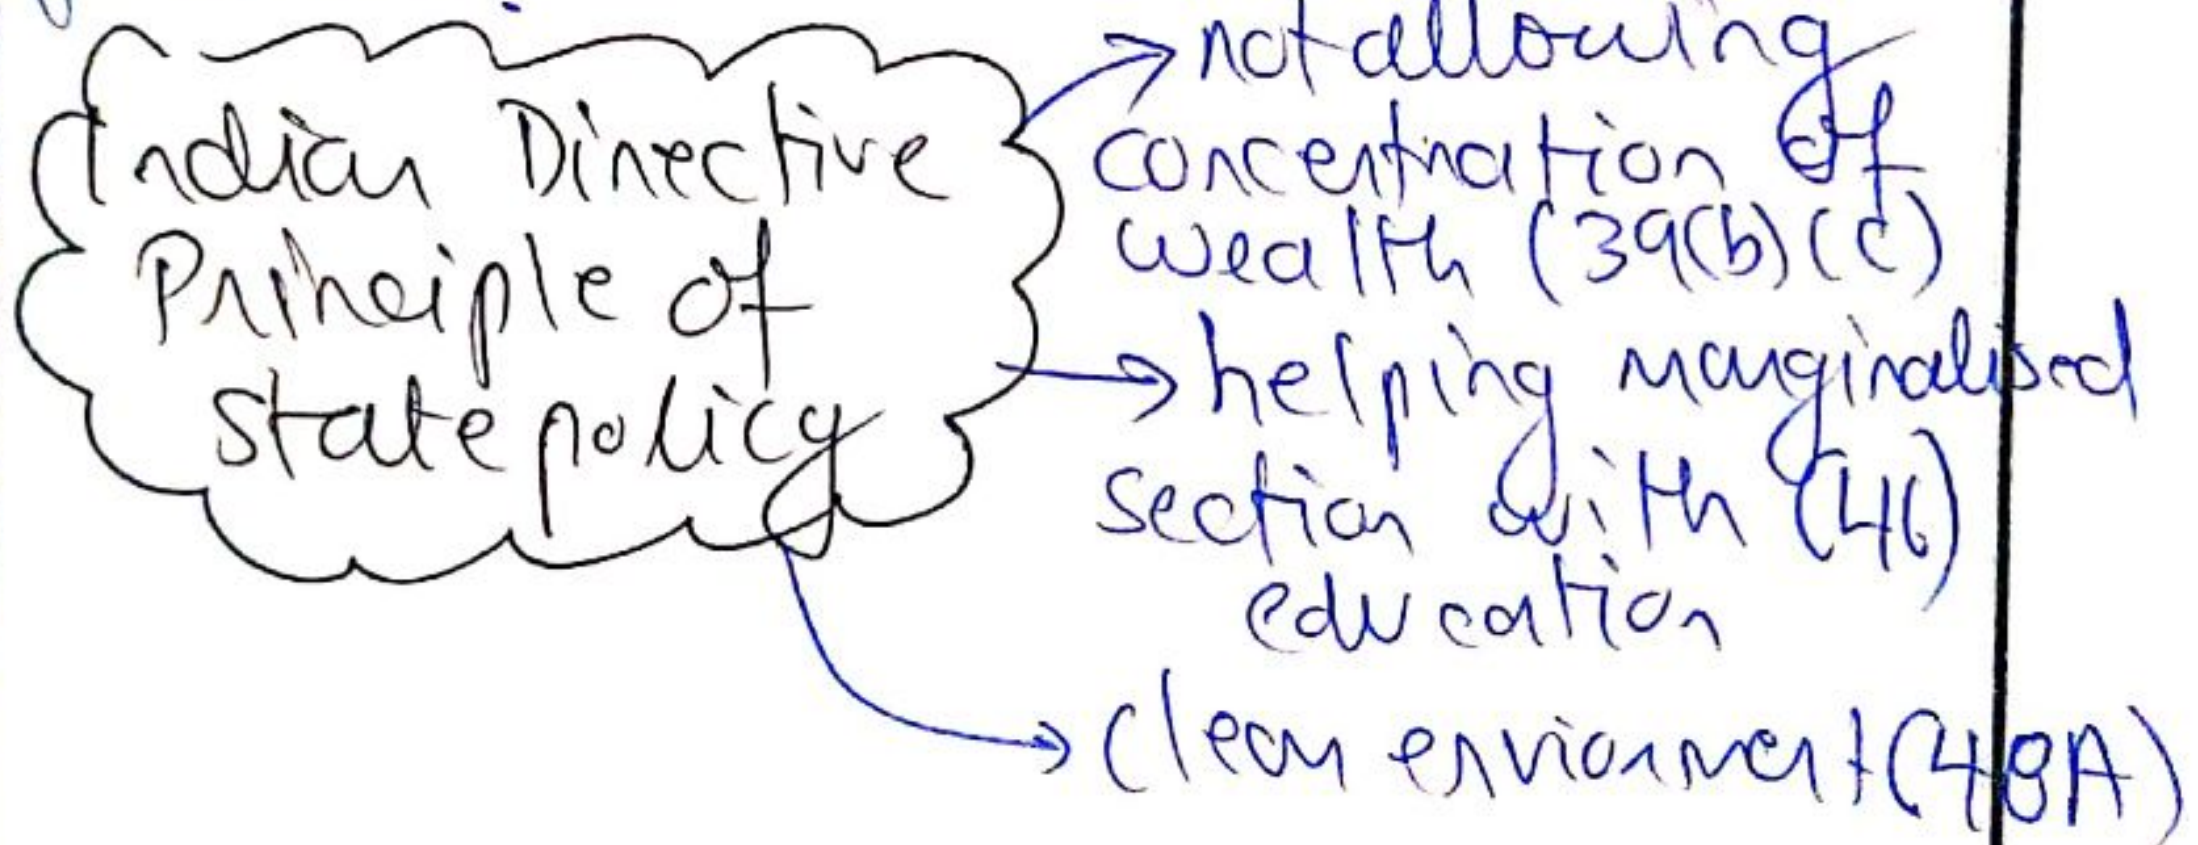 Indian Directive
Principle of
State policy
not allowing
concentration of
wealth (39(b)(c)
helping marginalised
section with (46)
education
clean enviornment (48A)